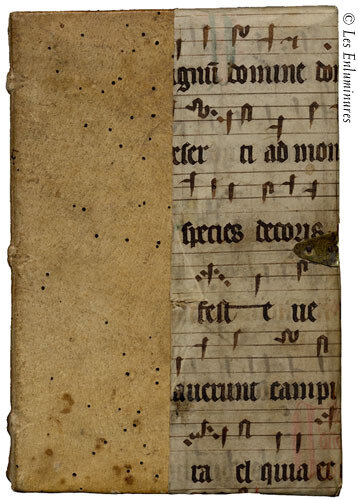 © Les Enluminures
agnū domine do
eser ti ad mon
species decoris
fest e ue
auerunt campi
ra el quia ec